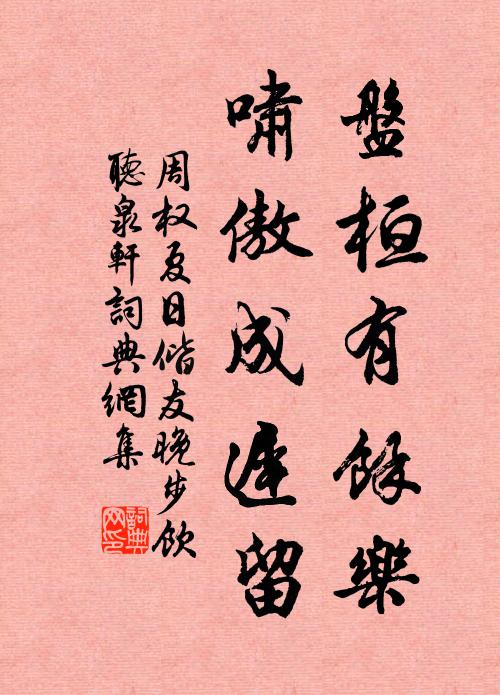 盤桓有餘樂
嘯傲成遲留
周权夏日偕友晚步飲
聽泉軒詞典網集
詞典
网印